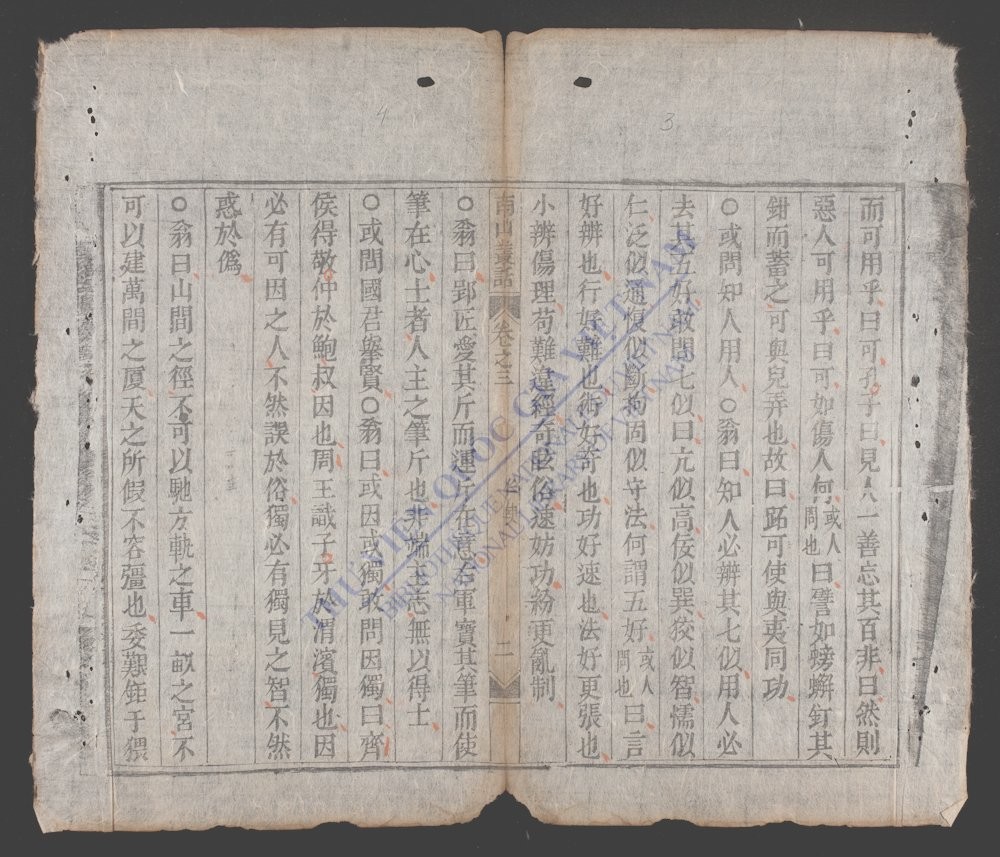 而可用乎曰可孔子曰見人一善忘其百非曰然則
惡人可用乎曰可如傷人何或人問也曰譬如螃蠏釘其
鉗而蓄之可與兒弄也故曰跖可使與夷同功
○或問知人用人○翁曰知人必辨其七似用人必
去其五好敢問七似曰亢似高佞似巽狡似智懦似
仁泛似通愎似斷拘固似守法何謂五好或人問也曰言
好辨也行好難也術好奇也功好速也法好更張也
小辨傷理苟難違經奇眩俗速妨功紛更亂制
南山叢話 卷之三 二
○翁曰郢匠愛其斤而運斤在意右軍寶其筆而使
筆在心士者人主之筆斤也非端主志無以得士
○或問國君舉賢○翁曰或因或獨敢問因獨曰齊
侯得敬仲於鮑叔因也周王識子牙於渭濱獨也因
必有可因之人不然誤於俗獨必有獨見之智不然
惑於僞
○翁曰山間之徑不可以馳方軌之車一畝之宮不
可以建萬間之厦天之所假不容彊也委艱鉅于猥
THƯ VIỆN QUỐC GIA VIỆT NAM
BIBLIOTHEQUE NATIONALE DU VIETNAM
NATIONAL LIBRARY OF VIETNAM
3
4